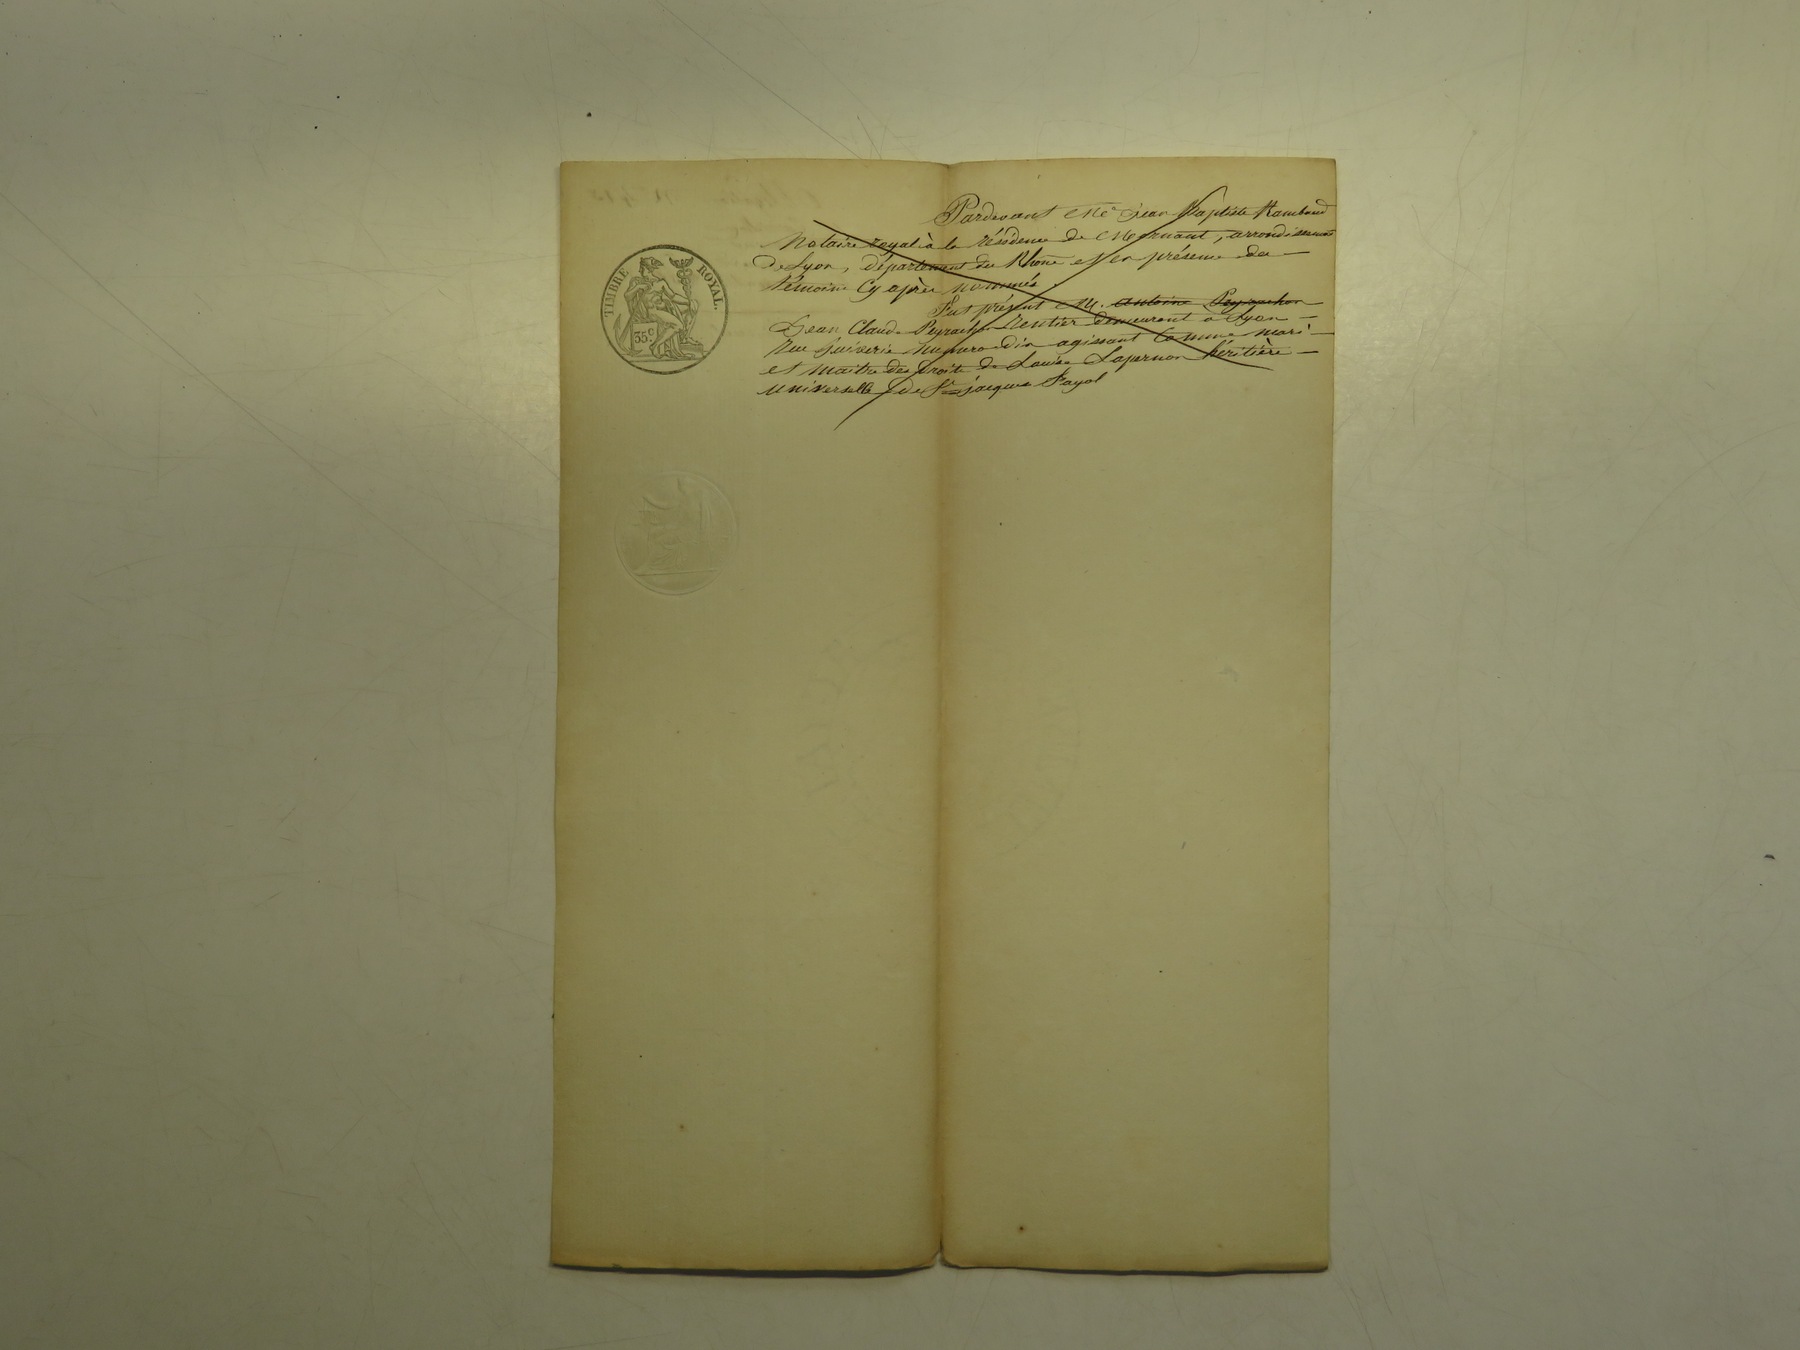 Pardevant Me Jean Baptiste Rambaud
Notaire royal à la résidence de Mornant, arrondissement
de Lyon, département du Rhône et en présence des
témoins Cy après nommés.
Fut présent M. antoine Peyrachon
Jean Claude Peyrachon Rentier demeurant à Lyon
Rue Juiverie numero dix agissant Comme mari
et maitre des droits de Louise héritière
universelle de Sr jacques Fayol
TIMBRE ROYAL.
35 C.